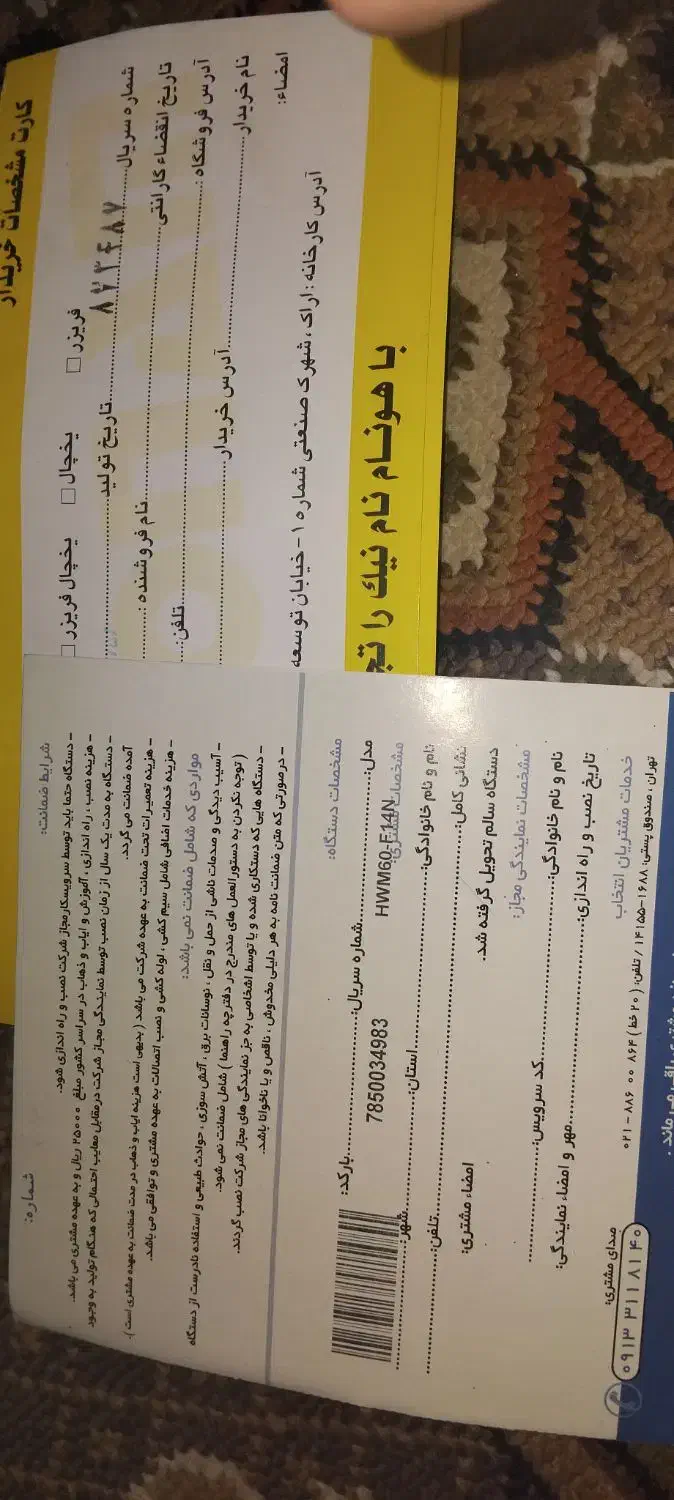 کارت مشخصات خریدار
یخچال فریزر □ یخچال □ فریزر □
شماره سریال ۸۲۳۴۸۷ تاریخ تولید
تاریخ انقضاء گارانتی نام فروشنده :
آدرس فروشگاه : تلفن:
نام خریدار آدرس خریدار
امضاء:
آدرس کارخانه : اراک ، شهرک صنعتی شماره ۱ - خیابان توسعه
با هونام نام نیک را تج
شماره:
شرایط ضمانت:
– دستگاه حتما باید توسط سرویسکار مجاز شرکت نصب و راه اندازی شود.
– هزینه نصب ، راه اندازی ، آموزش و ایاب و ذهاب در سراسر کشور مبلغ ۲۵۰۰۰ ریال و به عهده مشتری می باشد.
– دستگاه به مدت یک سال از زمان نصب توسط نمایندگی مجاز شرکت درمقابل معایب احتمالی که هنگام تولید به وجود
آمده ضمانت می گردد.
– هزینه تعمیرات تحت ضمانت به عهده شرکت می باشد ( بدیهی است هزینه ایاب و ذهاب در مدت ضمانت به عهده مشتری است ).
– هزینه خدمات اضافی شامل سیم کشی ، لوله کشی و نصب اتصالات به عهده مشتری و توافقی می باشد.
مواردی که شامل ضمانت نمی باشد:
– آسیب دیدگی و صدمات ناشی از حمل و نقل ، نوسانات برق ، آتش سوزی ، حوادث طبیعی و استفاده نادرست از دستگاه
( توجه نکردن به دستورالعمل های مندرج در دفترچه راهنما ) شامل ضمانت نمی شود.
– دستگاه هایی که دستکاری شده و یا توسط اشخاصی به جز نمایندگی های مجاز شرکت نصب گردند.
– درصورتی که متن ضمانت نامه به هر دلیلی مخدوش ، ناقص و یا ناخوانا باشد.
مشخصات دستگاه:
مدل: شماره سریال: بارکد:
HWM60-F14N 7850034983
مشخصات مشتری:
نام و نام خانوادگی: استان: شهر:
نشانی کامل: تلفن:
دستگاه سالم تحویل گرفته شد. امضاء مشتری:
مشخصات نمایندگی مجاز:
نام و نام خانوادگی: کد سرویس:
تاریخ نصب و راه اندازی: مهر و امضاء نمایندگی:
خدمات مشتریان انتخاب
صدای مشتری:
تهران ، صندوق پستی: ۱۶۸۸-۱۴۱۵۵ / تلفن: (۲۰ خط) ۸۶۴ ۰۰ ۸۸۶ - ۰۲۱
۰۹۱۳ ۳۱۱۸۱۴۰